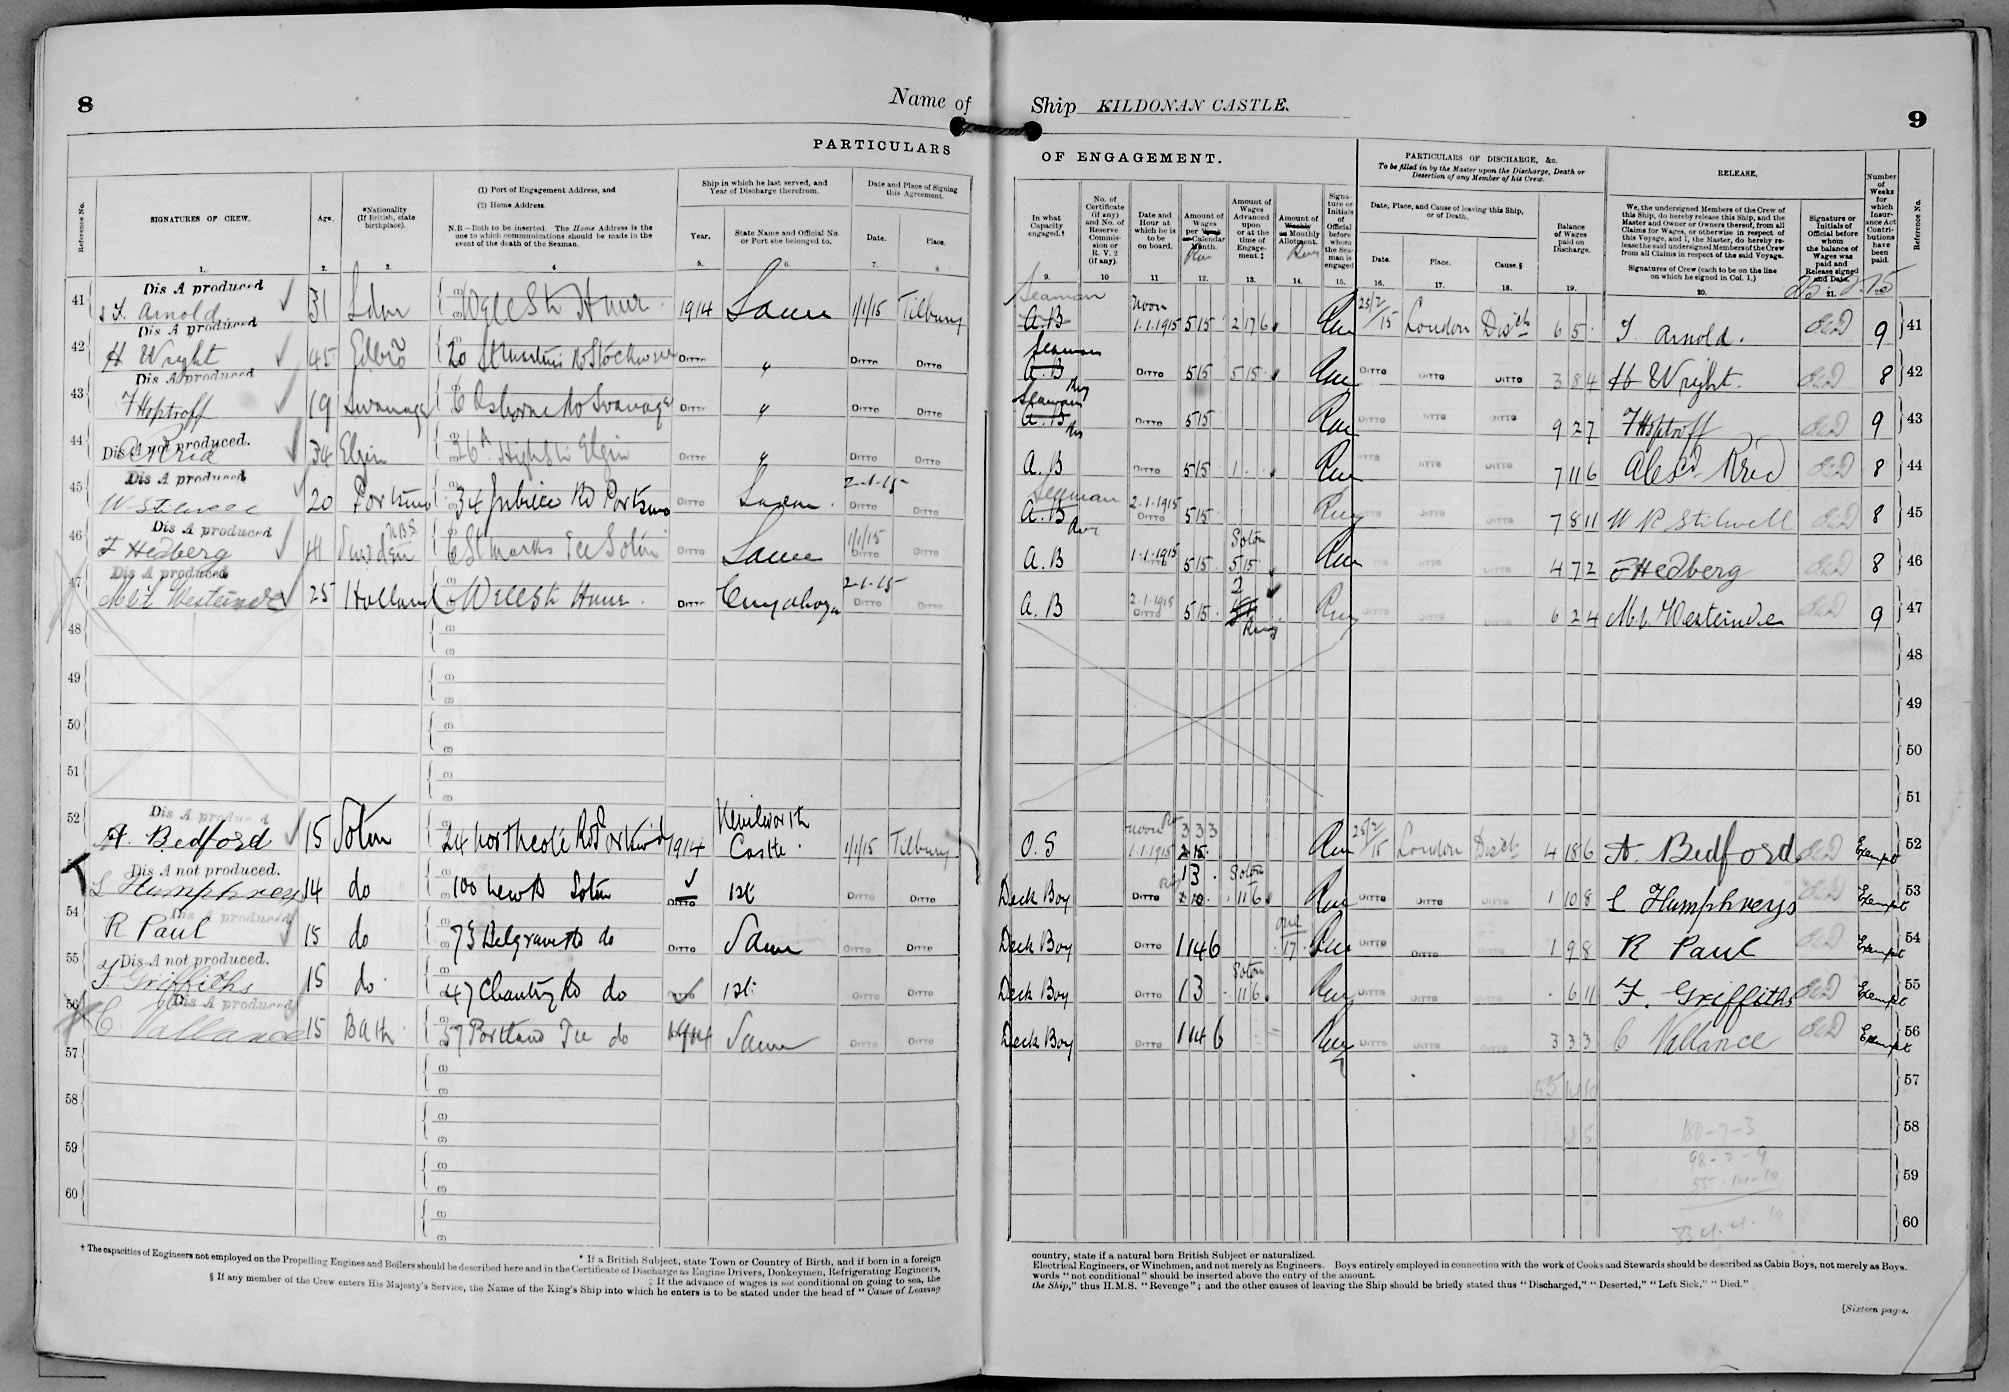 8
Name of
Ship KILDONAN CASTLE.
9
PARTICULARS
OF ENGAGEMENT.
Reference No.
SIGNATURES OF CREW.
1.
Age.
2.
*Nationality
(If British, state
birthplace).
3.
(1) Port of Engagement Address, and
(2) Home Address.
N.B.—Both to be inserted. The Home Address is the
one to which communications should be made in the
event of the death of the Seaman.
4
Ship in which he last served, and
Year of Discharge therefrom.
Year.
5.
State Name and Official No.
or Port she belonged to.
6.
Date and Place of Signing
this Agreement.
Date.
7.
Place.
8
In what
Capacity
engaged.†
9.
No. of
Certificate
(if any)
and No. of
Reserve
Commis-
sion or
R. V. 2
(if any).
10
Date and
Hour at
which he is
to be
on board.
11
Amount of
Wages
per Week
or Calendar
Month.
12.
Amount of
Wages
Advanced
upon
or at the
time of
Engage-
ment.‡
13.
Amount of
Weekly
or Monthly
Allotment.
14.
Signa-
ture or
Initials
of
Official
before
whom
the Sea-
man is
engaged
15.
PARTICULARS OF DISCHARGE, &c.
To be filled in by the Master upon the Discharge, Death or
Desertion of any Member of his Crew.
Date, Place, and Cause of leaving this Ship,
or of Death.
Date.
16.
Place.
17.
Cause.§
18.
Balance
of Wages
paid on
Discharge.
19.
RELEASE,
We, the undersigned Members of the Crew of
this Ship, do hereby release this Ship, and the
Master and Owner or Owners thereof, from all
Claims for Wages, or otherwise in respect of
this Voyage, and I, the Master, do hereby re-
lease the said undersigned Members of the Crew
from all Claims in respect of the said Voyage.
Signatures of Crew (each to be on the line
on which he signed in Col. 1.)
20.
Signature or
Initials of
Official before
whom
the balance of
Wages was
paid and
Release signed
and Date.
21.
Number
of
Weeks
for
which
Insur-
ance Act
Contri-
butions
have
been
paid.
Reference No.
41 Dis A produced F. Arnold 31 Wells St 1914 Same 1/1/15 Tilbury Seaman A.B Noon 1.1.1915 5 15 2 17 6 25/2/15 London Disch 6 5 F Arnold. 9 41
42 Dis A produced H Wright 45 20 DITTO " DITTO DITTO Seaman A.B DITTO 5 15 5 15 DITTO DITTO DITTO 3 8 4 H Wright. 8 42
43 Dis A produced 19 Swanage 6 Osborne Rd Swanage DITTO " DITTO DITTO Seaman A.B DITTO 5 15 DITTO DITTO DITTO 9 2 7 9 43
44 Dis A not produced. Reid 34 Elgin High St Elgin DITTO " DITTO DITTO A.B DITTO 5 15 1 DITTO DITTO DITTO 7 11 6 Alexd. Reid 8 44
45 Dis A produced 20 34 Jubilee Rd DITTO Same 2-1-15 DITTO DITTO Seaman A.B 2.1.1915 DITTO 5 15 DITTO DITTO DITTO 7 8 11 W R Stilwell 8 45
46 Dis A produced F Hedberg Sweden 6 St Marks Tce Soton DITTO Same 1/1/15 DITTO DITTO A.B 1.1.1915 DITTO 5 15 Soton 5 15 DITTO DITTO DITTO 4 7 2 F Hedberg 8 46
47 Dis A produced 25 Holland Wells St DITTO 2-1-15 DITTO DITTO A.B 2.1.1915 DITTO 5 15 2 DITTO DITTO DITTO 6 2 4 9 47
48 (1) (2) 48
49 (1) (2) 49
50 (1) (2) 50
51 (1) (2) 51
52 Dis A produced A. Bedford 15 Soton 24 Northcote Rd 1914 Kenilworth Castle. 1/1/15 Tilbury O.S Noon 1.1.1915 3 3 3 25/2/15 London Disch 4 18 6 A Bedford Exempt 52
Dis A not produced. L Humphreys 14 do 100 Soton DITTO 1st DITTO DITTO Deck Boy DITTO 1 3 Soton 11 6 DITTO DITTO DITTO 1 10 8 L Humphreys Exempt 53
54 Dis A produced R Paul 15 do 73 Belgrave Rd do DITTO Same DITTO DITTO Deck Boy DITTO 1 14 6 17 DITTO DITTO DITTO 1 9 8 R Paul Exempt 54
55 Dis A not produced. F Griffiths 15 do 47 Chantry Rd do 1st DITTO DITTO Deck Boy DITTO 1 3 Soton 11 6 DITTO DITTO DITTO 6 11 F. Griffiths Exempt 55
56 Dis A produced C Vallance 15 Bath 57 Portland Tce do 1914 Same DITTO DITTO Deck Boy DITTO 1 14 6 DITTO DITTO DITTO 3 3 3 C Vallance Exempt 56
57 (1) (2) 57
58 (1) (2) 58
59 (1) (2) 59
60 (1) (2) 60
180-7-3
98-2-9
55-14-10
† The capacities of Engineers not employed on the Propelling Engines and Boilers should be described here and in the Certificate of Discharge as Engine Drivers, Donkeymen, Refrigerating Engineers,
* If a British Subject, state Town or Country of Birth, and if born in a foreign
‡ If the advance of wages is not conditional on going to sea, the
§ If any member of the Crew enters His Majesty's Service, the Name of the King's Ship into which he enters is to be stated under the head of "Cause of Leaving
country, state if a natural born British Subject or naturalized.
Electrical Engineers, or Winchmen, and not merely as Engineers. Boys entirely employed in connection with the work of Cooks and Stewards should be described as Cabin Boys, not merely as Boys.
words "not conditional" should be inserted above the entry of the amount.
the Ship," thus H.M.S. "Revenge"; and the other causes of leaving the Ship should be briefly stated thus "Discharged," "Deserted," "Left Sick," "Died."
[Sixteen pages.